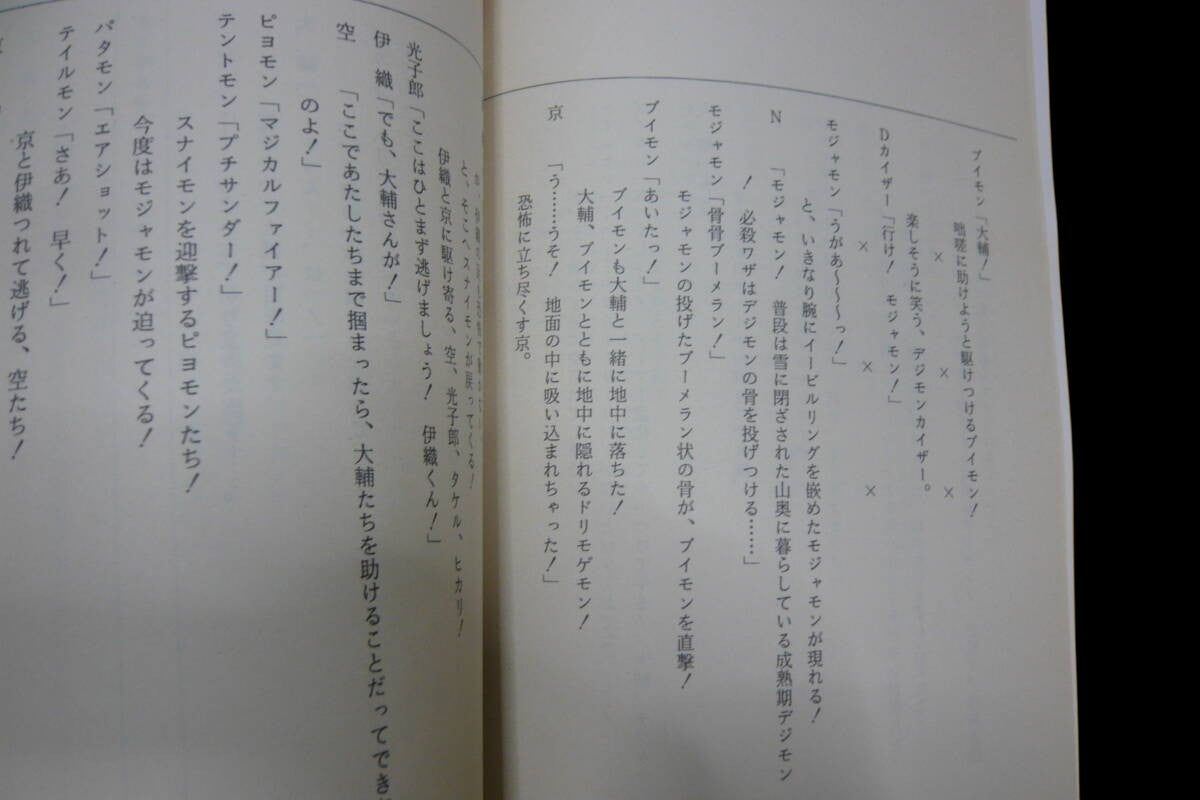 ブイモン「大輔！」
咄嗟に助けようと駆けつけるブイモン！
× × ×
楽しそうに笑う、デジモンカイザー。
Dカイザー「行け！　モジャモン！」
× × ×
モジャモン「うがあ〜〜〜っ！」
と、いきなり腕にイービルリングを嵌めたモジャモンが現れる！
N　「モジャモン！　普段は雪に閉ざされた山奥に暮らしている成熟期デジモン
！　必殺ワザはデジモンの骨を投げつける……」
モジャモン「骨骨ブーメラン！」
モジャモンの投げたブーメラン状の骨が、ブイモンを直撃！
ブイモン「あいたっ！」
ブイモンも大輔と一緒に地中に落ちた！
大輔、ブイモンとともに地中に隠れるドリモゲモン！
京　「う……うそ！　地面の中に吸い込まれちゃった！」
恐怖に立ち尽くす京。
と、そこへスナイモンが戻ってくる！
伊織と京に駆け寄る、空、光子郎、タケル、ヒカリ！
光子郎「ここはひとまず逃げましょう！　伊織くん！」
伊　織「でも、大輔さんが！」
空　「ここであたしたちまで掴まったら、大輔たちを助けることだってでき
のよ！」
ピヨモン「マジカルファイアー！」
テントモン「プチサンダー！」
スナイモンを迎撃するピヨモンたち！
今度はモジャモンが迫ってくる！
パタモン「エアショット！」
テイルモン「さあ！　早く！」
京と伊織つれて逃げる、空たち！